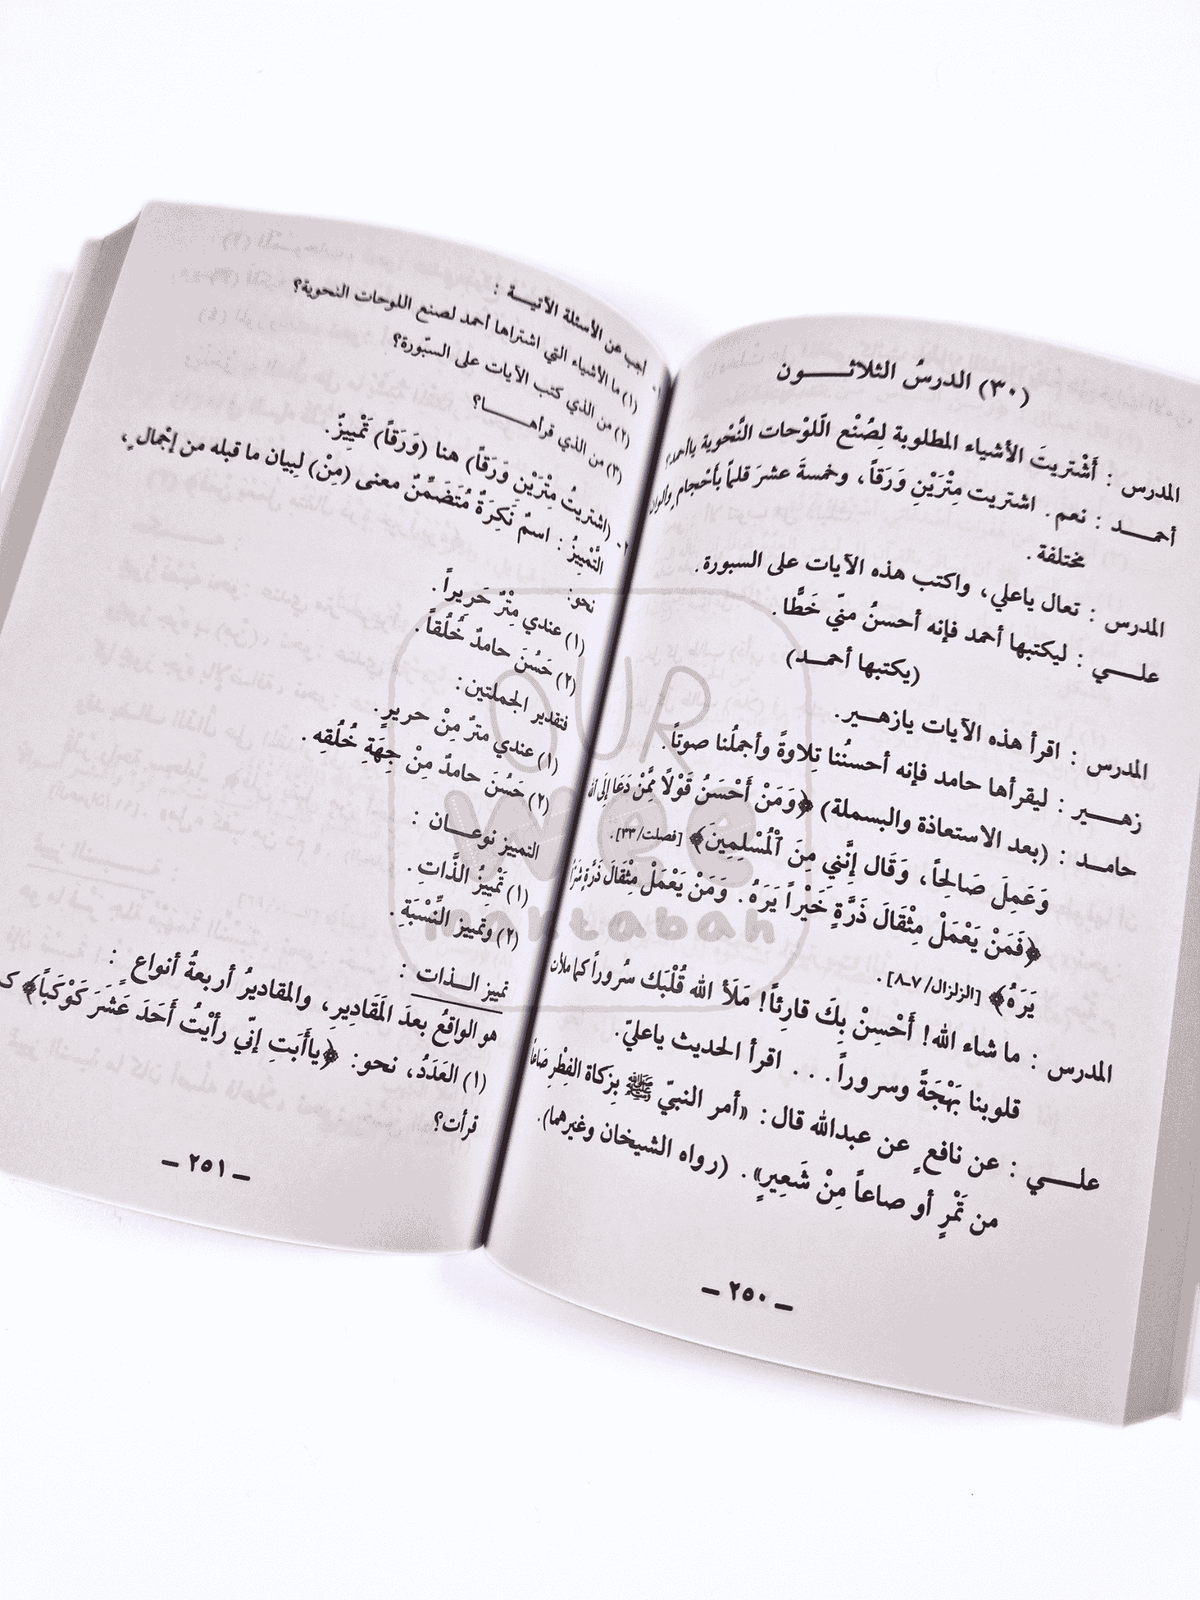 (٣٠) الدرسُ الثلاثـــــون
المدرس : أَشْتريتَ الأشياء المطلوبة لِصُنْع الّلوْحات النَّحْوية ياأحمد؟
أحمـــد : نعم. اشتريت مِتْرَيْنِ وَرَقاً، وخمسةَ عشرَ قلماً بأحْجامٍ وألوان
مختلفة.
المدرس : تعال ياعلي، واكتب هذه الآيات على السبورة.
علـــي : ليكتبها أحمد فإنه أحسنُ منّي خَطًّا.
(يكتبها أحمـــد)
المدرس : اقرأ هذه الآيات يازهـــير.
زهـــير : ليقرأها حامد فإنه أحسنُنا تِلاوةً وأجملُنا صوتاً.
حامـد : (بعد الاستعاذة والبسملة) ﴿وَمَنْ أَحْسَنُ قَوْلًا مِّمَّنْ دَعَا إِلَى الله
وَعَمِلَ صَالِحاً، وَقَال إِنَّنِي مِنَ ٱلْمُسْلِمِينَ﴾ [فصلت/٣٣].
﴿فَمَنْ يَعْمَلْ مِثْقَالَ ذَرَّةٍ خَيْراً يَرَهُ. وَمَنْ يَعْمَلْ مِثْقَالَ ذَرَّةٍ شَرّاً
يَرَهُ﴾ [الزلزال/٧-٨].
المدرس : ما شاء الله! أَحْسِنْ بِكَ قارِئاً! مَلَأ الله قُلْبَك سُروراً كما ملأت
قلوبنا بَهْجَةً وسروراً... اقرأ الحديث ياعليّ.
علـــي : عن نافعٍ عن عبدالله قال: «أمر النبيّ ﷺ بِزكاة الفِطْرِ صَاعاً
من تَمْرٍ أو صاعاً مِنْ شَعِيرٍ». (رواه الشيخان وغيرهما).
ـ ٢٥٠ ـ
١- اجب عن الأسئلة الآتيـــة :
(١) ما الأشياء التي اشتراها أحمد لصنع اللوحات النحوية؟
(٢) من الذي كتب الآيات على السبّورة؟
(٣) من الذي قرأهـــــا؟
٢- (اشتريتُ مِتْرَيْنِ وَرَقاً) هنا (وَرَقاً) تَمْيِيزٌ.
التَّمْيِيزُ : اسمٌ نَكِرَةٌ مُتَضَمِّنٌ معنى (مِنْ) لِبيان ما قبله من إجْمالٍ،
نحو:
(١) عندي مِتْرٌ حَرِيراً.
(٢) حَسُنَ حامدٌ خُلُقاً.
فتقدير الجملتين:
(١) عندي مترٌ مِنْ حريرٍ.
(٢) حَسُنَ حامدٌ مِنْ جِهَةِ خُلُقِهِ.
التمييز نوعـــان :
(١) تَمْيِيزُ الذَّاتِ.
(٢) وتمييز النِّسْبَةِ.
تمييز الـــذات :
هو الواقعُ بعدَ المَقَادِيرِ، والمقاديرُ أربعةُ أنواعٍ :
(١) العَدَدُ، نحو: ﴿ياأَبَتِ إِنّي رأيْتُ أَحَدَ عَشَرَ كَوْكَباً﴾
قرأت؟
ـ ٢٥١ ـ
OUR
wee
maktabah